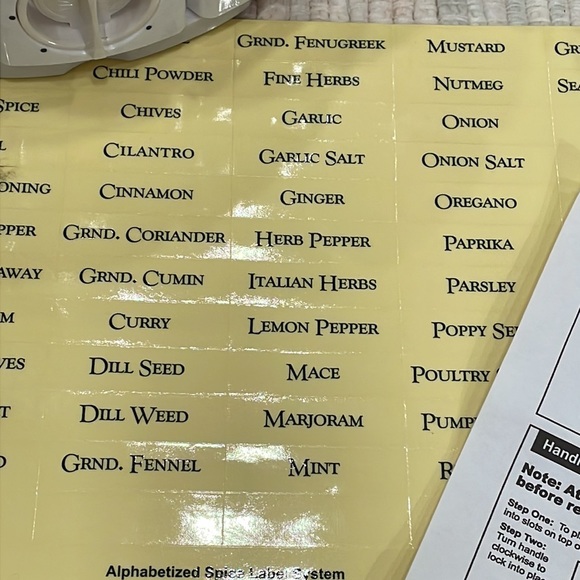 GRND. FENUGREEK
MUSTARD
GR
CHILI POWDER
FINE HERBS
NUTMEG
SEA
SPICE
CHIVES
GARLIC
ONION
L
CILANTRO
GARLIC SALT
ONION SALT
ONING
CINNAMON
GINGER
OREGANO
PPER
GRND. CORIANDER
HERB PEPPER
PAPRIKA
AWAY
GRND. CUMIN
ITALIAN HERBS
PARSLEY
M
CURRY
LEMON PEPPER
POPPY SE
VES
DILL SEED
MACE
POULTRY
T
DILL WEED
MARJORAM
PUMP
GRND. FENNEL
MINT
R
Alphabetized Spice Label System
Handl
Note: At
before re
Step One: To pl
into slots on top o
Step Two:
Turn handle
clockwise to
lock into p